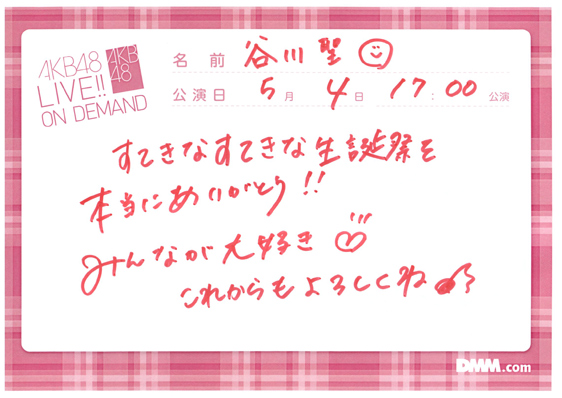 AKB48
LIVE!!
ON DEMAND
AKB
48
名前 谷川聖
公演日 5月 4日 17:00 公演
すてきなすてきな生誕祭を
本当にありがとう!!
みんなが大好き
これからもよろしくね
DMM.com